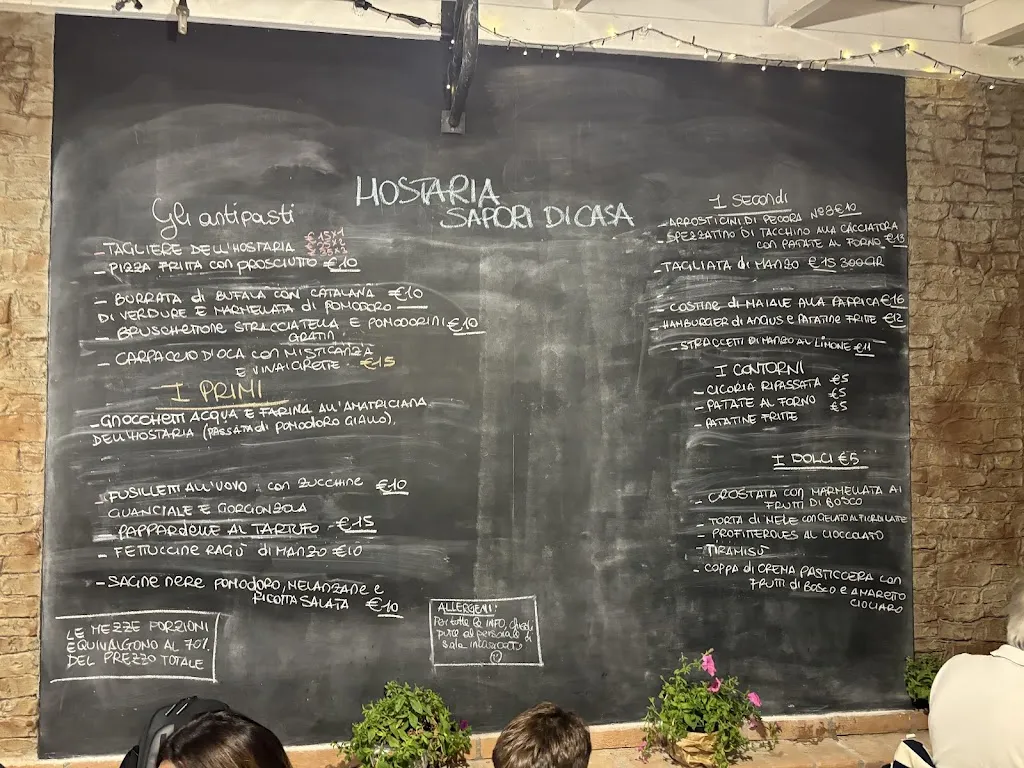 HOSTARIA
SAPORI DI CASA
Gli antipasti
- TAGLIERE DELL'HOSTARIA
- PIZZA FRITTA CON PROSCIUTTO €10
- BURRATA di BUFALA CON CATALANA €10
DI VERDURE E MARMELLATA di POMODORO
- BRUSCHETTONE STRACCIATELLA E POMODORINI €10
GRATIN
- CARPACCIO D'OCA CON MISTICANZA
E VINAIGRETTE - €15
I PRIMI
- GNOCCHETTI ACQUA E FARINA ALL'AMATRICIANA
DELL'HOSTARIA (PASSATA di POMODORO GIALLO).
- FUSILLETTI ALL'UOVO: CON ZUCCHINE €10
GUANCIALE E GORGONZOLA
- PAPPARDELLE AL TARTUFO - €15
- FETTUCCINE RAGÙ di MANZO €10
- SAGNE NERE POMODORO, MELANZANE E
RICOTTA SALATA €10
LE MEZZE PORZIONI
EQUIVALGONO AL 70%
DEL PREZZO TOTALE
ALLERGENI:
Per tutte le INFO, chiedi
pure al personale di
sala
I SECONDI
- ARROSTICINI DI PECORA N°8 €10
- SPEZZATINO DI TACCHINO ALLA CACCIATORA
CON PATATE AL FORNO €13
- TAGLIATA di MANZO €15 300GR
- COSTINE di MAIALE ALLA PAPRICA €16
- HAMBURGER di ANGUS E PATATINE FRITTE €12
- STRACCETTI DI MANZO AL LIMONE €11
I CONTORNI
- CICORIA RIPASSATA €5
- PATATE AL FORNO €5
- PATATINE FRITTE €5
I DOLCI €5
- CROSTATA CON MARMELLATA AI
FRUTTI DI BOSCO
- TORTA di MELE CON GELATO AL FIORDILATTE
- PROFITEROLES AL CIOCCOLATO
- TIRAMISÙ
- COPPA di CREMA PASTICCERA CON
FRUTTI di BOSCO E AMARETTO
CIOCIARO